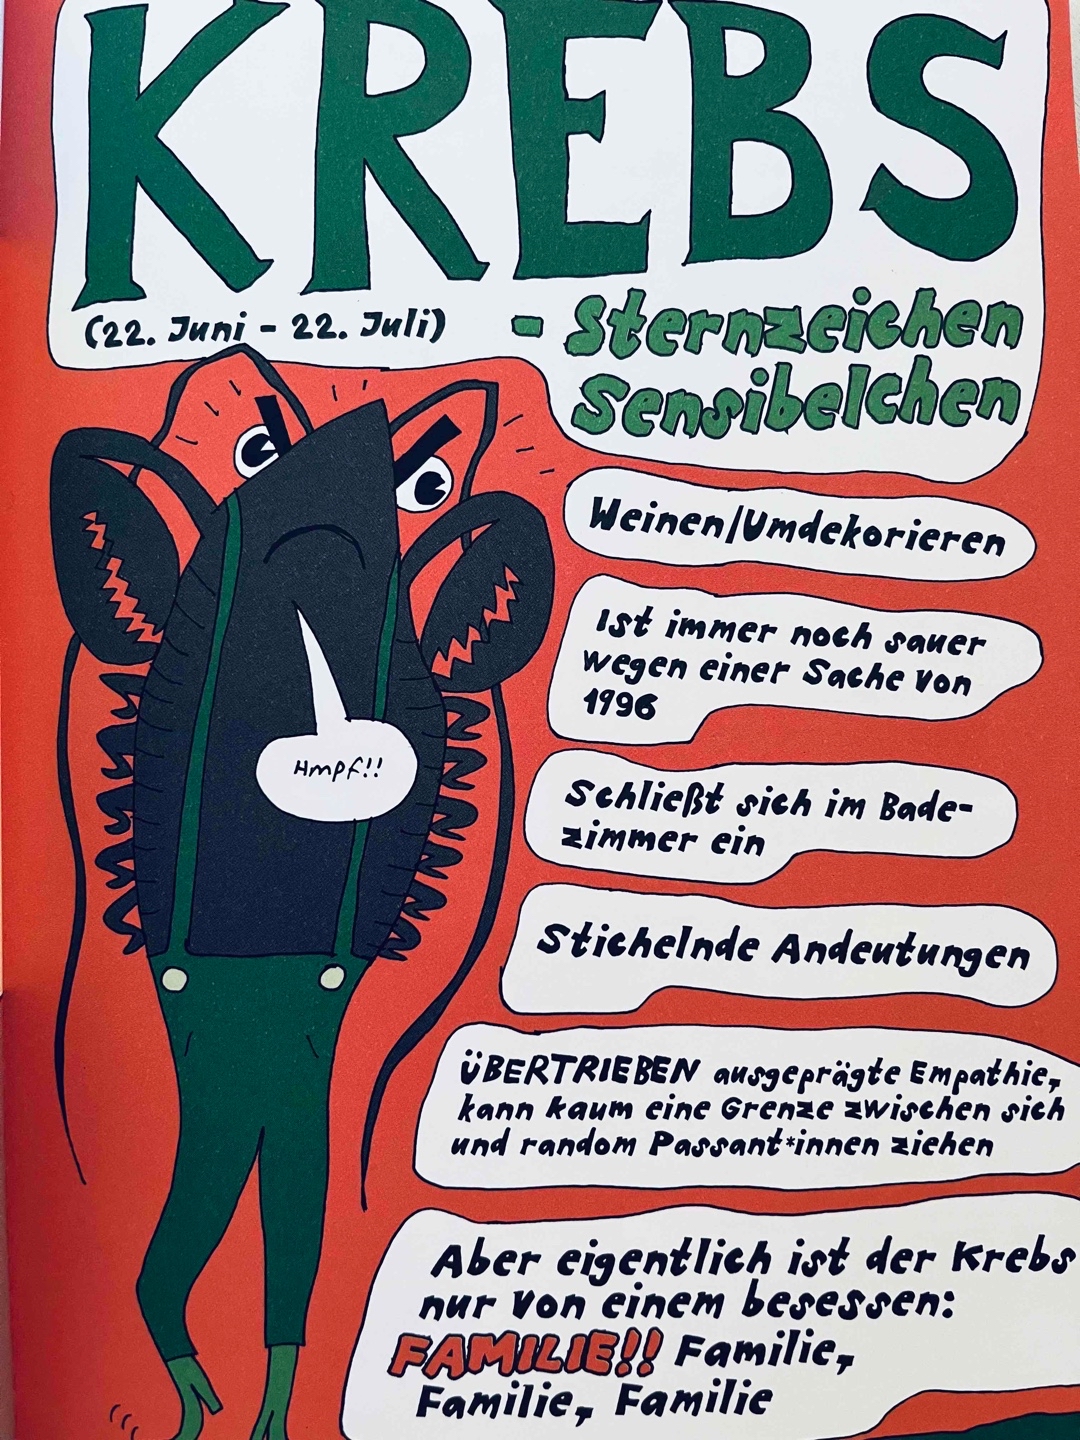 KREBS
(22. Juni - 22. Juli)
- Sternzeichen
Sensibelchen
Weinen/Umdekorieren
Ist immer noch sauer
wegen einer Sache von
1996
Schließt sich im Bade-
zimmer ein
Stichelnde Andeutungen
ÜBERTRIEBEN ausgeprägte Empathie,
kann kaum eine Grenze zwischen sich
und random Passant*innen ziehen
Aber eigentlich ist der Krebs
nur von einem besessen:
FAMILIE!! Familie,
Familie, Familie
Hmpf!!